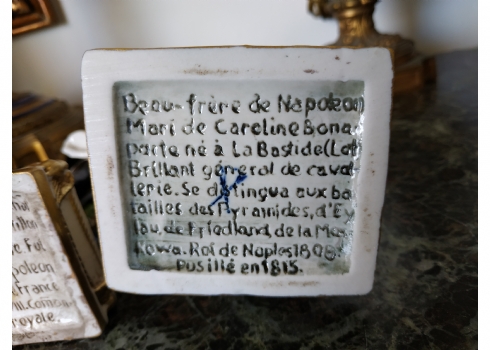 Beau-frère de Napoleon
Mari de Caroline Bona
parte né à La Bastide(Lot
Brillant général de caval
lerie. Se distingua aux ba
tailles des Pyramides, d'Ey
lau, de Friedland, de la Mos
kowa. Roi de Naples 1808.
Fusillé en 1815.
poleon
France
royale.